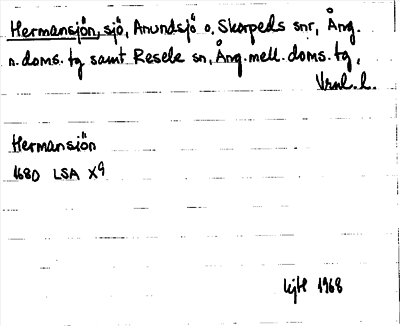 Hermansjön, sjö, Anundsjö o. Skorpeds snr, Ång.
n. doms. tg samt Resele sn, Ång. mell. doms. tg,
Vrnl. l.
Hermansjön
1680 LSA X9
kjtl 1968